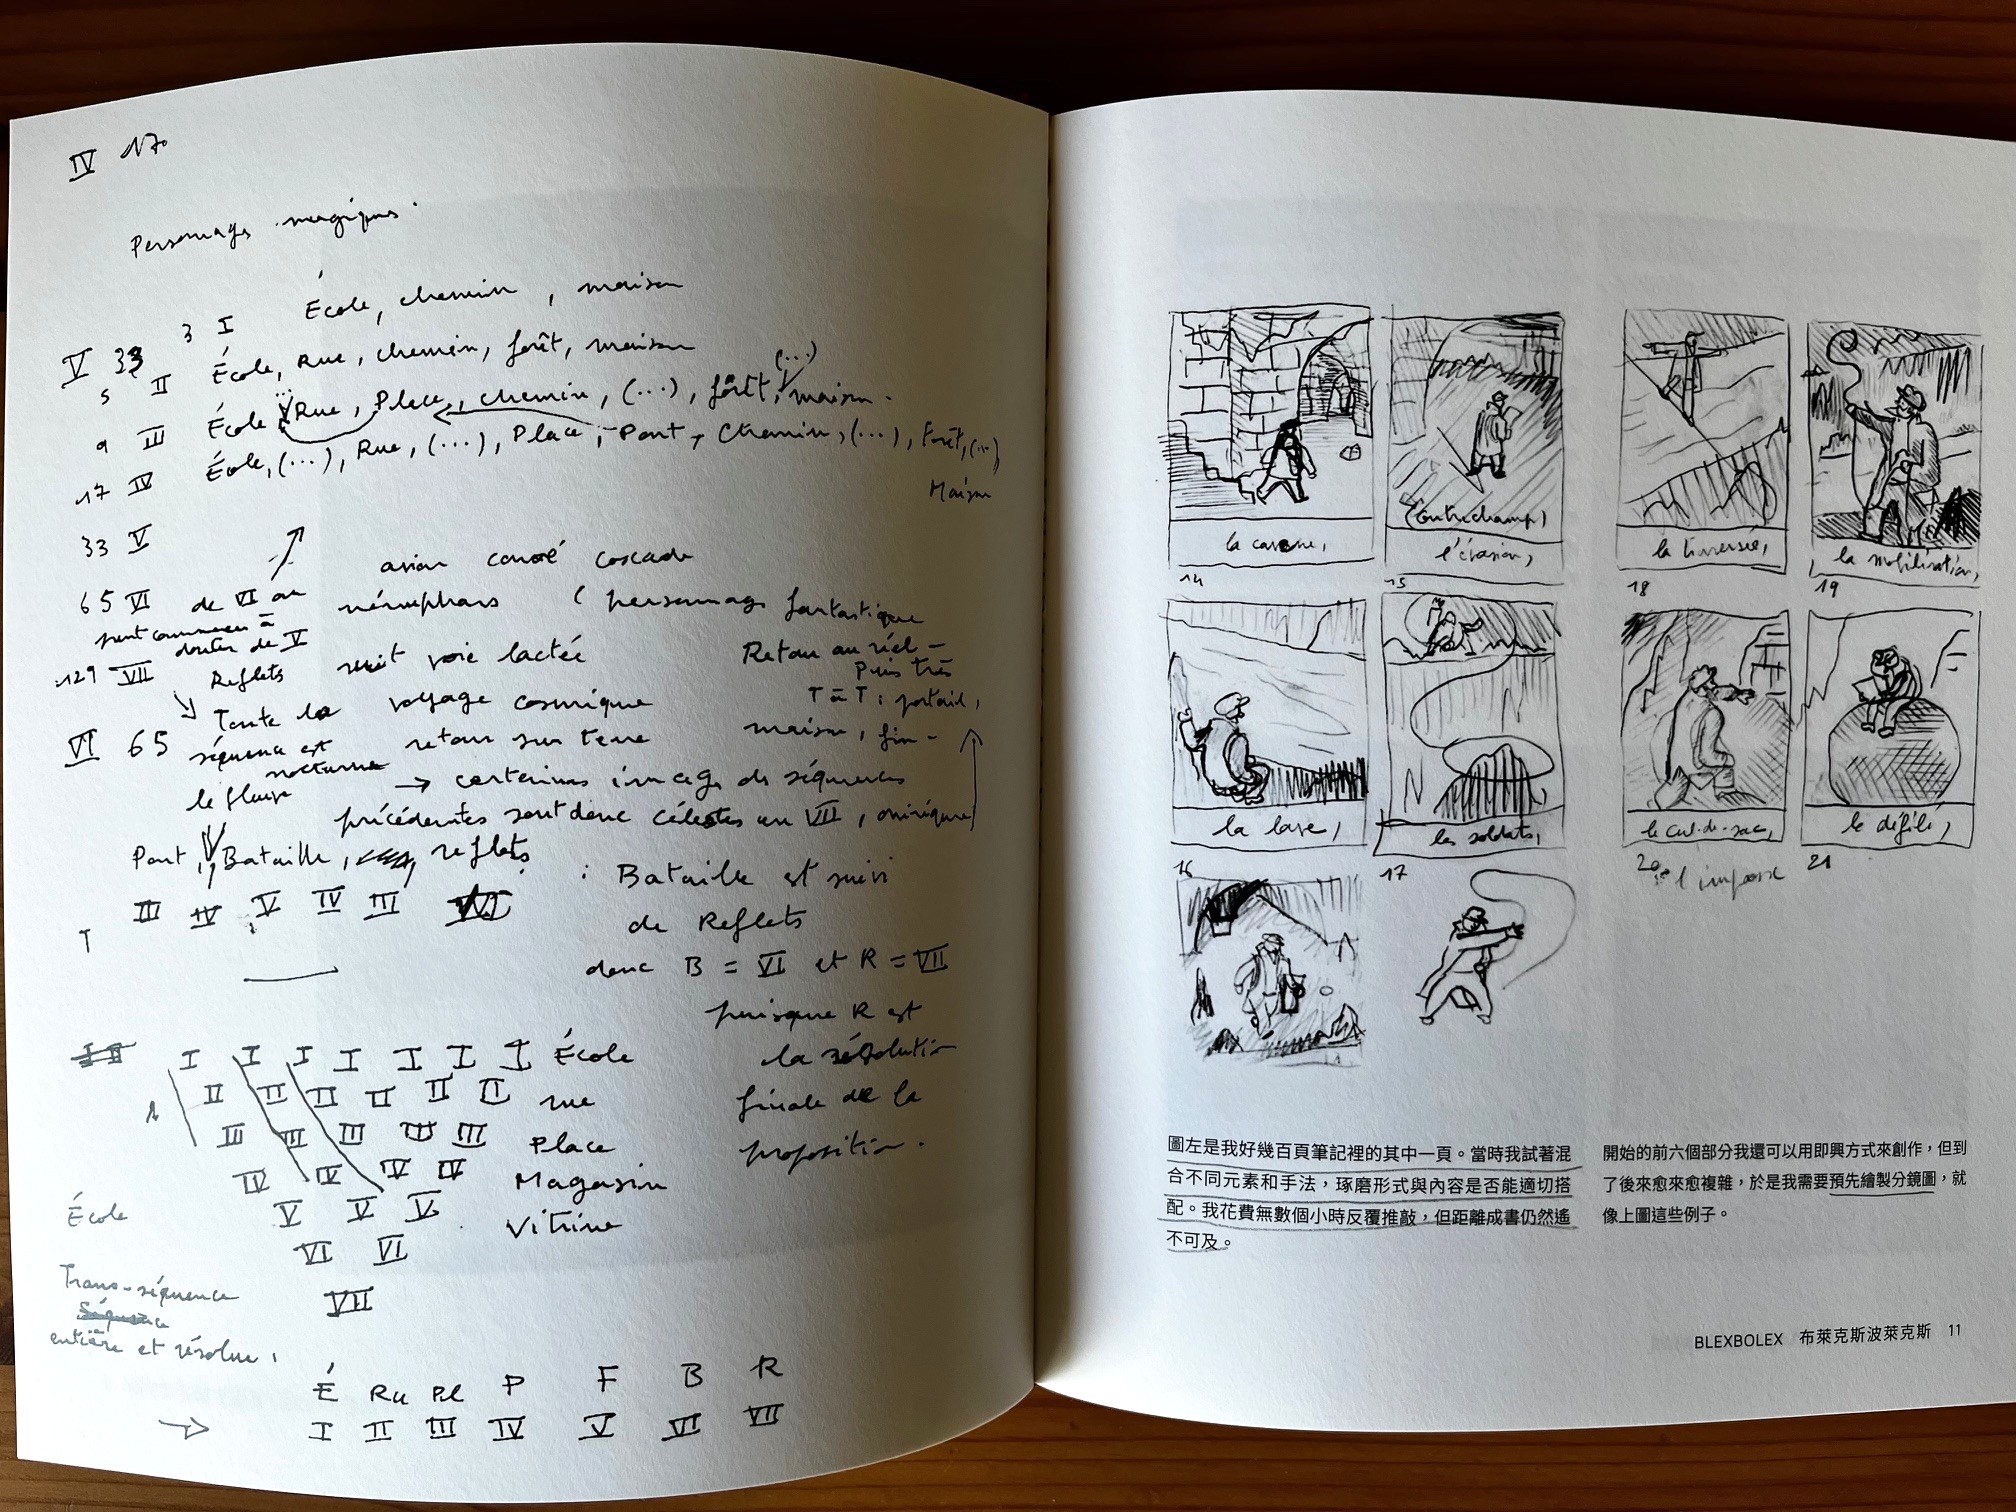 IV 17
Personnages magiques.
3 I École, chemin, maison
V 33
5 II École, Rue, chemin, forêt, maison
(...)
9 III École, Rue, Place, chemin, (...), forêt, maison.
17 IV École, (...), Rue, (...), Place, Pont, Chemin, (...), Forêt, (...)
Maison
33 V
avion canoé cascade
65 VI de VI on nénuphars ( personnage fantastique
peut commencer à
douter de V
129 VII Reflets nuit voie lactée
Retour au réel -
Puis très
T à T : portail,
maison, fin -
Toute la voyage cosmique
VI 65 séquence est retour sur terre
nocturne
le fleuve → certaines images des séquences
précédentes sont donc célestes en VII, onirique
Pont, Bataille, reflets
III IV V IV III
: Bataille est suivi
de Reflets
donc B = VI et R = VII
puisque R est
la résolution
finale de la
proposition.
I I I I I I I École
II II II II II II rue
III III III III III Place
IV IV IV IV Magasin
V V V Vitrine
École
VI VI
VII
Trans-séquence
Séquence
entière et résolue.
É Ru Pl P F B R
→ I II III IV V VI VII
la caverne,
14
(contrechamp)
l'évasion,
15
la traversée,
18
la mobilisation,
19
la lave,
16
les soldats,
17
le cul-de-sac,
20
l'impasse
le défilé,
21
圖左是我好幾百頁筆記裡的其中一頁。當時我試著混
合不同元素和手法，琢磨形式與內容是否能適切搭
配。我花費無數個小時反覆推敲，但距離成書仍然遙
不可及。
開始的前六個部分我還可以用即興方式來創作，但到
了後來愈來愈複雜，於是我需要預先繪製分鏡圖，就
像上圖這些例子。
BLEXBOLEX 布萊克斯波萊克斯 11